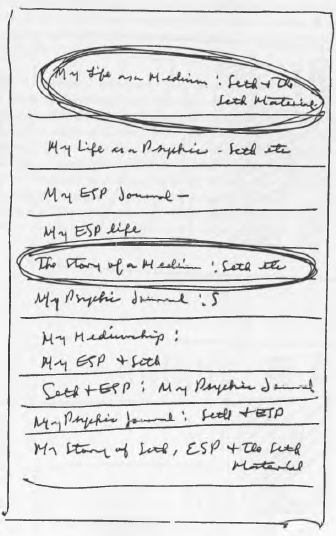 My Life as a Medium : Seth & the
Seth Material
My Life as a Psychic - Seth etc
My ESP Journal —
My ESP life
The Story of a Medium : Seth etc
My Psychic Journal : S
My Mediumship :
My ESP & Seth
Seth & ESP : My Psychic Journal
My Psychic Journal : Seth & ESP
My Story of Seth, ESP & the Seth
Material